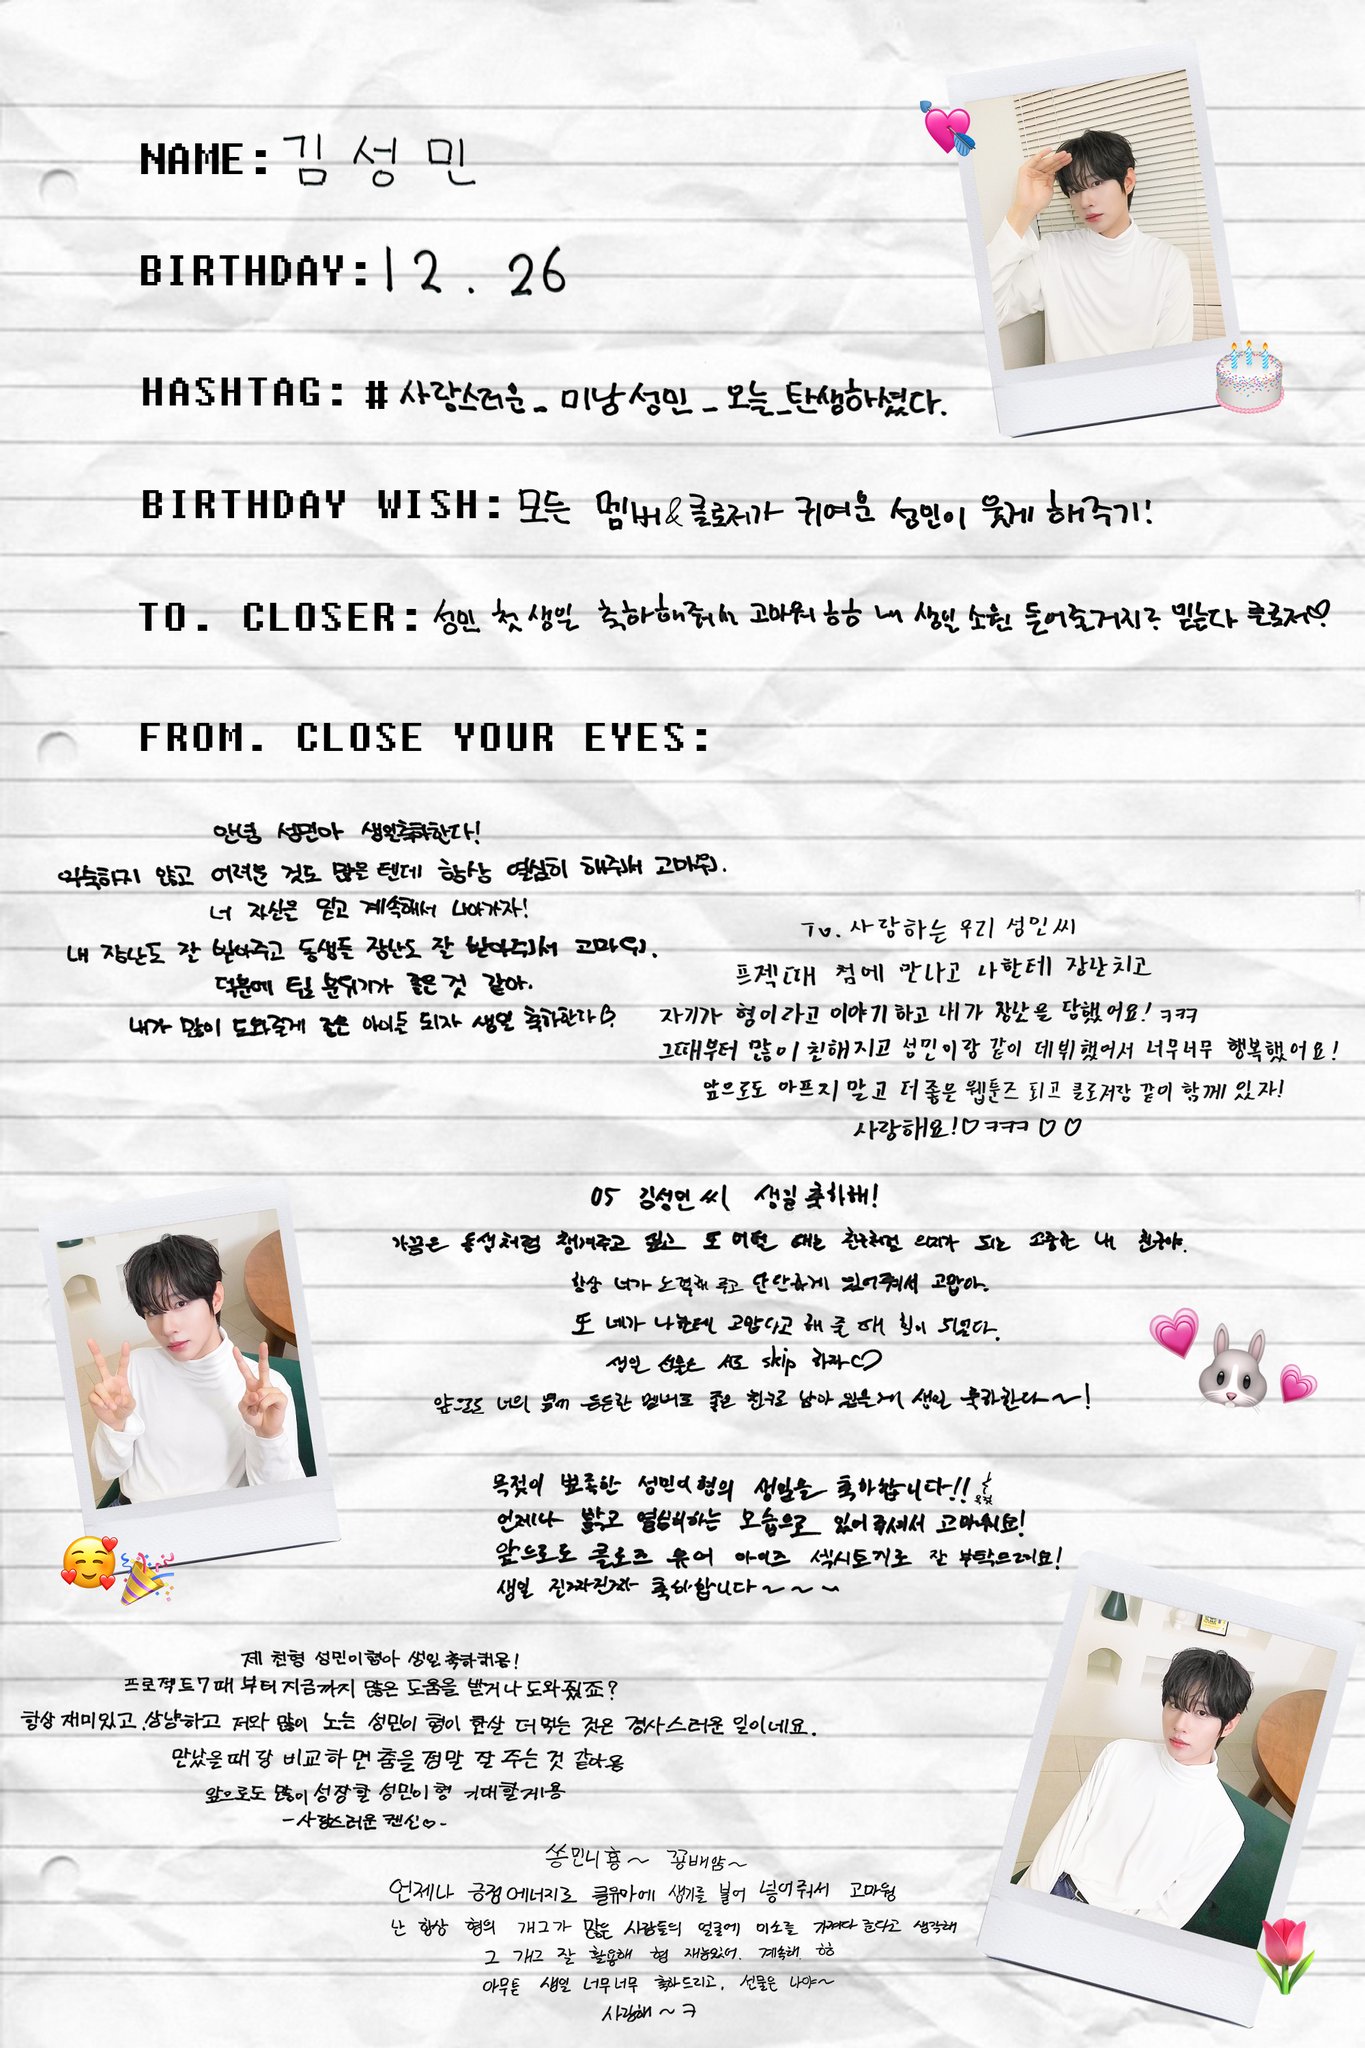 NAME: 김성민
BIRTHDAY: 12.26
HASHTAG: #사랑스러운_미남성민_오늘_탄생하셨다.
BIRTHDAY WISH: 모든 멤버&클로저가 귀여운 성민이 웃게 해주기!
TO. CLOSER: 성민 첫 생일 축하해줘서 고마워 ㅎㅎ 내 생일 소원 들어줄거지? 믿는다 클로저♡
FROM. CLOSE YOUR EYES:
안녕 성민아 생일축하한다!
익숙하지 않고 어려운 것도 많을텐데 항상 열심히 해주어서 고마워.
너 자신을 믿고 계속해서 나아가자!
내 장난도 잘 받아주고 동생들 장난도 잘 받아주어서 고마워.
덕분에 팀 분위기가 좋은 것 같아.
내가 많이 도와줄게 좋은 아이돌 되자 생일 축하한다♡
To. 사랑하는 우리 성민씨
프젝때 첨에 만나고 나한테 장난치고
자기가 형이라고 이야기하고 내가 장난을 당했어요! ㅋㅋㅋ
그때부터 많이 친해지고 성민이랑 같이 데뷔했어서 너무너무 행복했어요!
앞으로도 아프지 말고 더 좋은 웹툰즈 되고 클로저랑 같이 함께 있자!
사랑해요!♡ㅋㅋㅋ♡♡
05 김성민씨 생일축하해!
가끔은 동생처럼 챙겨주고 싶고 또 어떨 때는 친구처럼 의지가 되는 소중한 내 친구야.
항상 너가 노력해 주고 단단하게 있어줘서 고맙다.
또 네가 나한테 고맙다고 해 줄 때 힘이 되었다.
생일 선물은 서로 skip 하자♡
앞으로도 너의 곁에 든든한 멤버로 좋은 친구로 남아 있을게 생일 축하한다~!
목젖이 뾰족한 성민이형의 생일을 축하합니다!!
언제나 밝고 열심히하는 모습으로 있어주셔서 고마워요!
앞으로도 클로즈 유어 아이즈 섹시토끼로 잘 부탁드려요!
생일 진짜진짜 축하합니다~~~
제 친형 성민이형아 생일축하해용!
프로젝트7때부터 지금까지 많은 도움을 받거나 도와줬죠?
항상 재미있고 상냥하고 저와 많이 노는 성민이 형이 한살 더 먹는 것은 경사스러운 일이네요.
만났을 때 당 비교하면 춤을 정말 잘 추는 것 같아용
앞으로도 많이 성장할 성민이형 기대할게용
-사랑스러운 켄신♡-
쏭민니횽~ 꽁배얌~
언제나 긍정에너지로 클유아에 생기를 불어 넣어줘서 고마웡
난 항상 형의 개그가 많은 사람들의 얼굴에 미소를 가져다 준다고 생각해
그 개그 잘 활용해 형 재능있어. 계속해. ㅎㅎ
아무튼 생일 너무너무 축하드리고, 선물은 나야~
사랑해~ㅋ